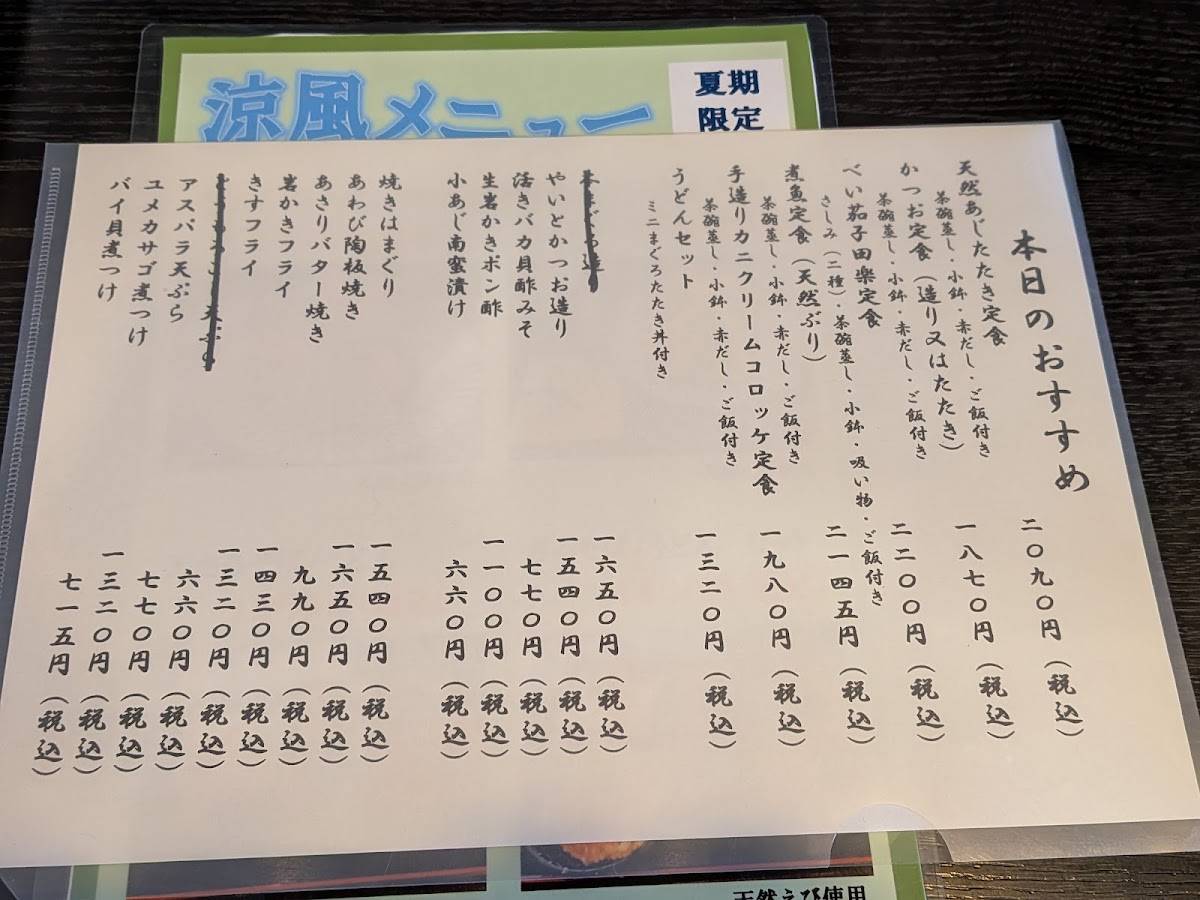 涼風メニュー
夏期
限定
本日のおすすめ
天然あじたたき定食 二〇九〇円(税込)
茶碗蒸し・小鉢・赤だし・ご飯付き
かつお定食(造り又はたたき) 一八七〇円(税込)
茶碗蒸し・小鉢・赤だし・ご飯付き
べい茄子田楽定食 二二〇〇円(税込)
さしみ(二種)・茶碗蒸し・小鉢・吸い物・ご飯付き
煮魚定食(天然ぶり) 二一四五円(税込)
茶碗蒸し・小鉢・赤だし・ご飯付き
手造りカニクリームコロッケ定食 一九八〇円(税込)
茶碗蒸し・小鉢・赤だし・ご飯付き
うどんセット 一三二〇円(税込)
ミニまぐろたたき丼付き
一六五〇円(税込)
やいとかつお造り 一五四〇円(税込)
活きバカ貝酢みそ 七七〇円(税込)
生岩かきポン酢 一一〇〇円(税込)
小あじ南蛮漬け 六六〇円(税込)
焼きはまぐり 一五四〇円(税込)
あわび陶板焼き 一六五〇円(税込)
あさりバター焼き 九九〇円(税込)
岩かきフライ 一四三〇円(税込)
きすフライ 一三二〇円(税込)
六六〇円(税込)
アスパラ天ぷら 七七〇円(税込)
ユメカサゴ煮つけ 一三二〇円(税込)
バイ貝煮つけ 七一五円(税込)
天然えび使用